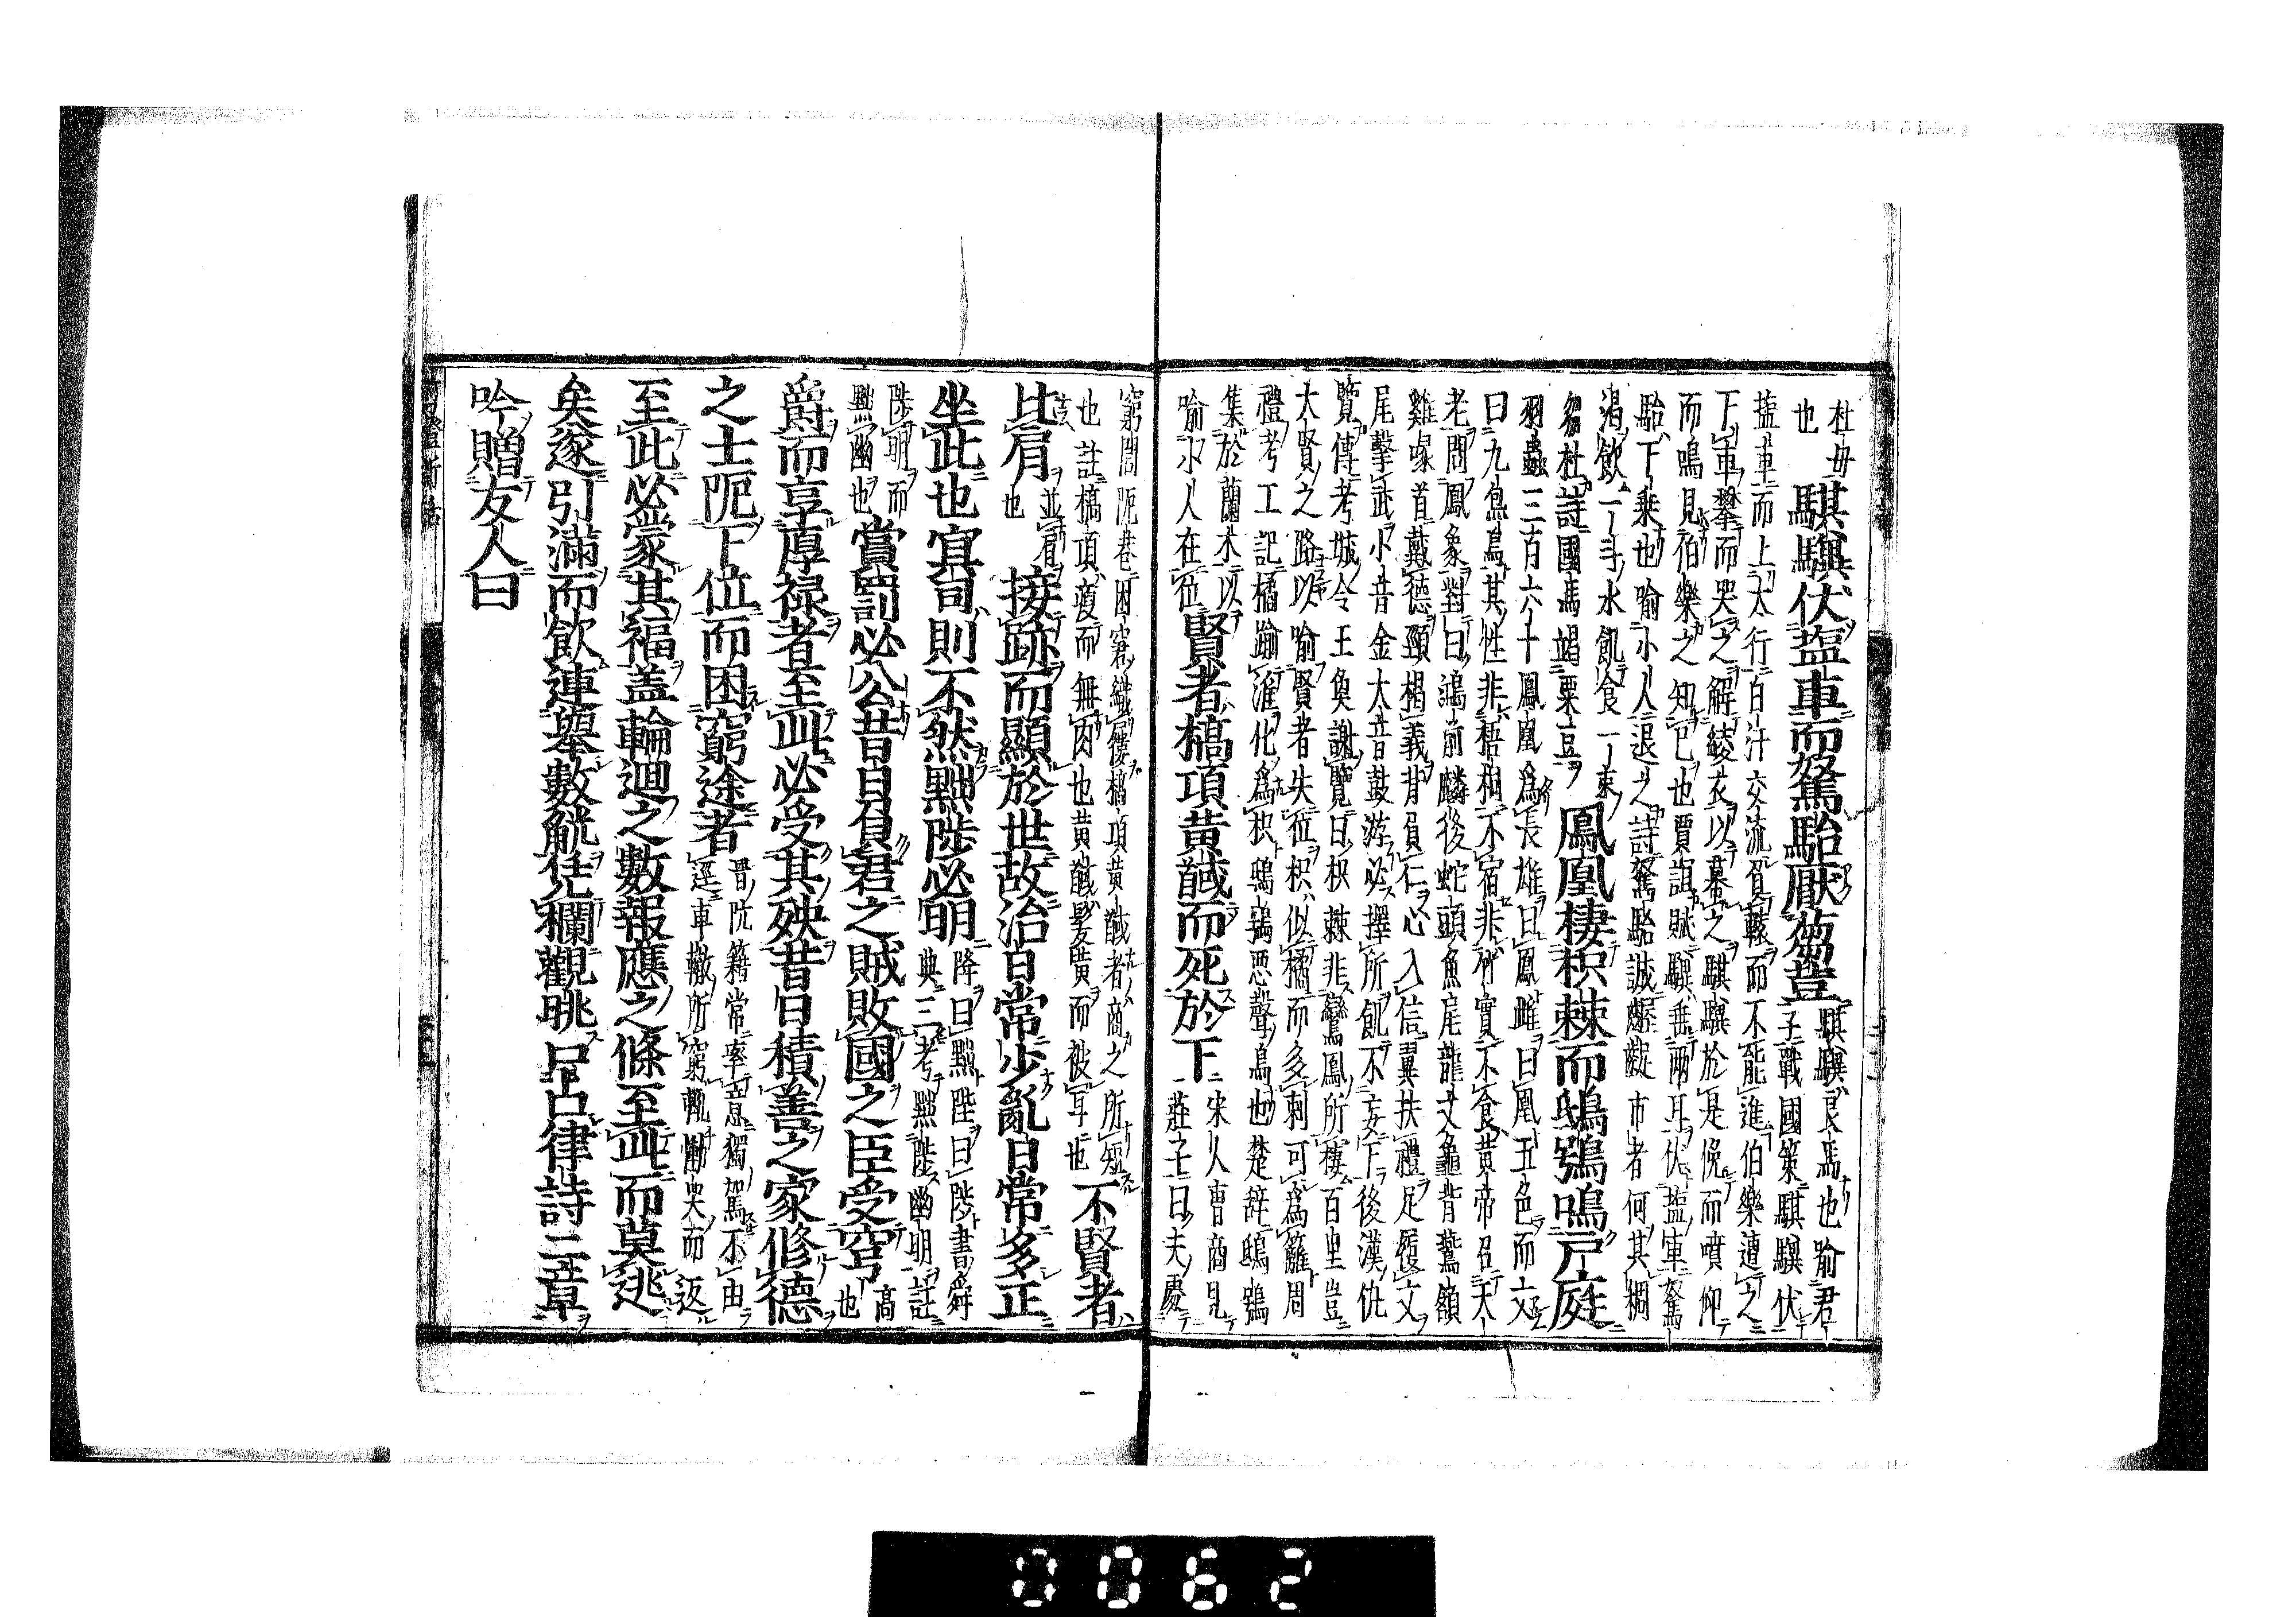 杜毋
也
騏驥伏塩車而駑駘厭芻豆
騏驥良馬也喩君
子戰國策騏驥伏
塩車而上太行白汗交流負轅而不能進伯樂遭之
下車攀而哭之解綾衣以冪之騏驥於是俛而噴仰
而鳴見伯樂之知已也賈誼賦驥垂兩耳伏塩車駑
駘下乗也喩小人退之詩駑駘誠齷齪市者何其稠
渇飲一斗水飢食一束
芻杜詩國馬竭粟豆
鳳凰棲枳棘而鴟鴞鳴戸庭
羽蟲三百六十鳳凰爲長雄曰鳳雌曰凰五色而六文
曰九色鳥其性非梧桐不宿非竹實不食黄帝召天
老問鳳象對曰鴻前麟後蛇頭魚尾龍文龜背鷰額
雞喙首戴德頸揭義背負仁心入信翼扶禮足履文
尾擊武小音金大音鼓游必擇所飢不妄下後漢仇
覽傳考城令王奐謝覽曰枳棘非鸞鳳所棲百里豈
大賢之路以喩賢者失位枳似橘而多刺可爲籬周
禮考工記橘踰淮化爲枳鴟鴞悪聲鳥也楚辭鴟鴞
集於蘭木以
喩小人在位
賢者槁項黄馘而死於下
宋人曹商見
莊之士曰夫處
窮閭阨巷困窘織屨槁項黄馘者商之所短
也註槁項瘦而無肉也黄馘髪黄而被耳也
不賢者
比肩
並肩
也
接跡而顯於世故治日常少亂日常多正
坐此也冥司則不然黜陟必明
降曰黜陞曰陟書舜
典三考黜陟幽明註
陟明而
黜幽也
賞罰必公昔日負君之賊敗國之臣受穹
高
也
爵而享厚禄者至此必受其殃昔日積善之家修德
之士阨下位而困窮途者
晋阮籍常率意獨駕不由
逕車轍所窮輙慟哭而返
至此必蒙其福盖輪廻之數報應之條至此而莫逃
矣遂引滿而飲連擧數觥凭欄觀眺口占律詩二章
吟贈友人曰
0062